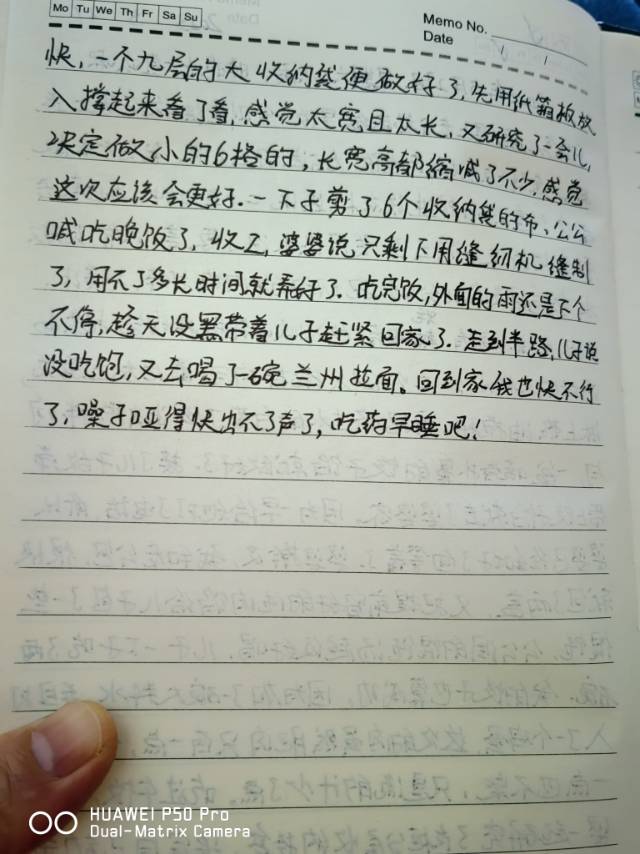 Mo Tu We Th Fr Sa Su
Memo No.
Date / /
快,一个九层的大收纳袋便做好了,先用纸箱板放
入撑起来看了看,感觉太宽且太长,又研究了一会儿,
决定做小的6格的,长宽高都缩减了不少,感觉
这次应该会更好.一下子剪了6个收纳袋的布、公公
喊吃晚饭了,收工,婆婆说只剩下用缝纫机缝制
了,用不了多长时间就弄好了.吃完饭,外面的雨还是下个
不停,趁天没黑带着儿子赶紧回家了.走到半路,儿子说
没吃饱,又去喝了一碗兰州拉面。回到家我也快不行
了,嗓子哑得快出不了声了,吃药早睡吧!
HUAWEI P50 Pro
Dual-Matrix Camera